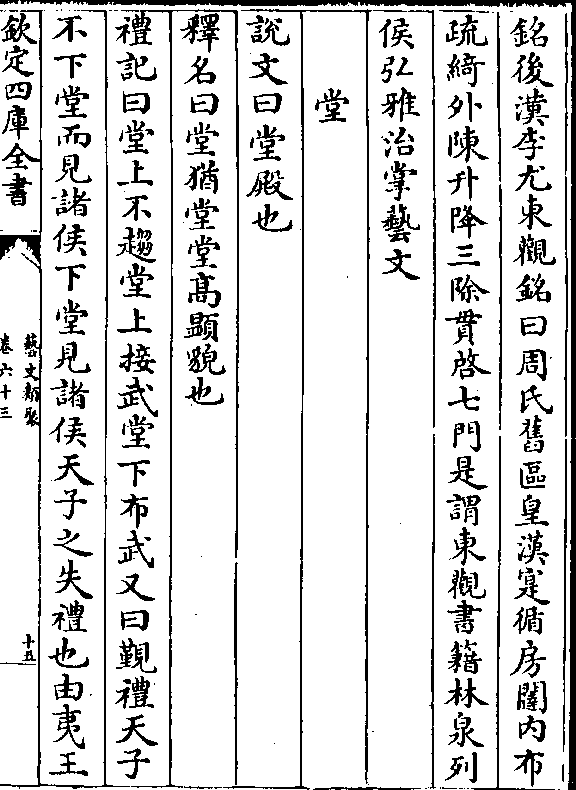 銘後漢李尤東觀銘曰周氏舊區皇漢寔循房闥内布
疏綺外陳升降三除貫啓七門是謂東觀書籍林泉列
侯弘雅治掌藝文
堂
說文曰堂殿也
釋名曰堂猶堂堂髙顯貌也
禮記曰堂上不趨堂上接武堂下布武又曰覲禮天子
不下堂而見諸侯下堂見諸侯天子之失禮也由夷王
欽定四庫全書
藝文類聚
卷六十三
十五